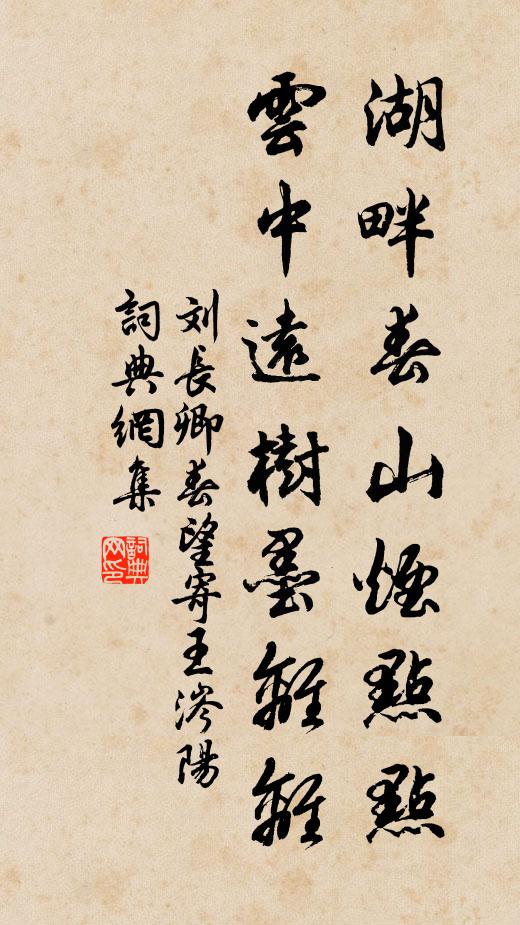 湖畔春山煙點點
雲中遠樹墨離離
刘長卿春望寄王涔陽
詞典網集
詞典網印